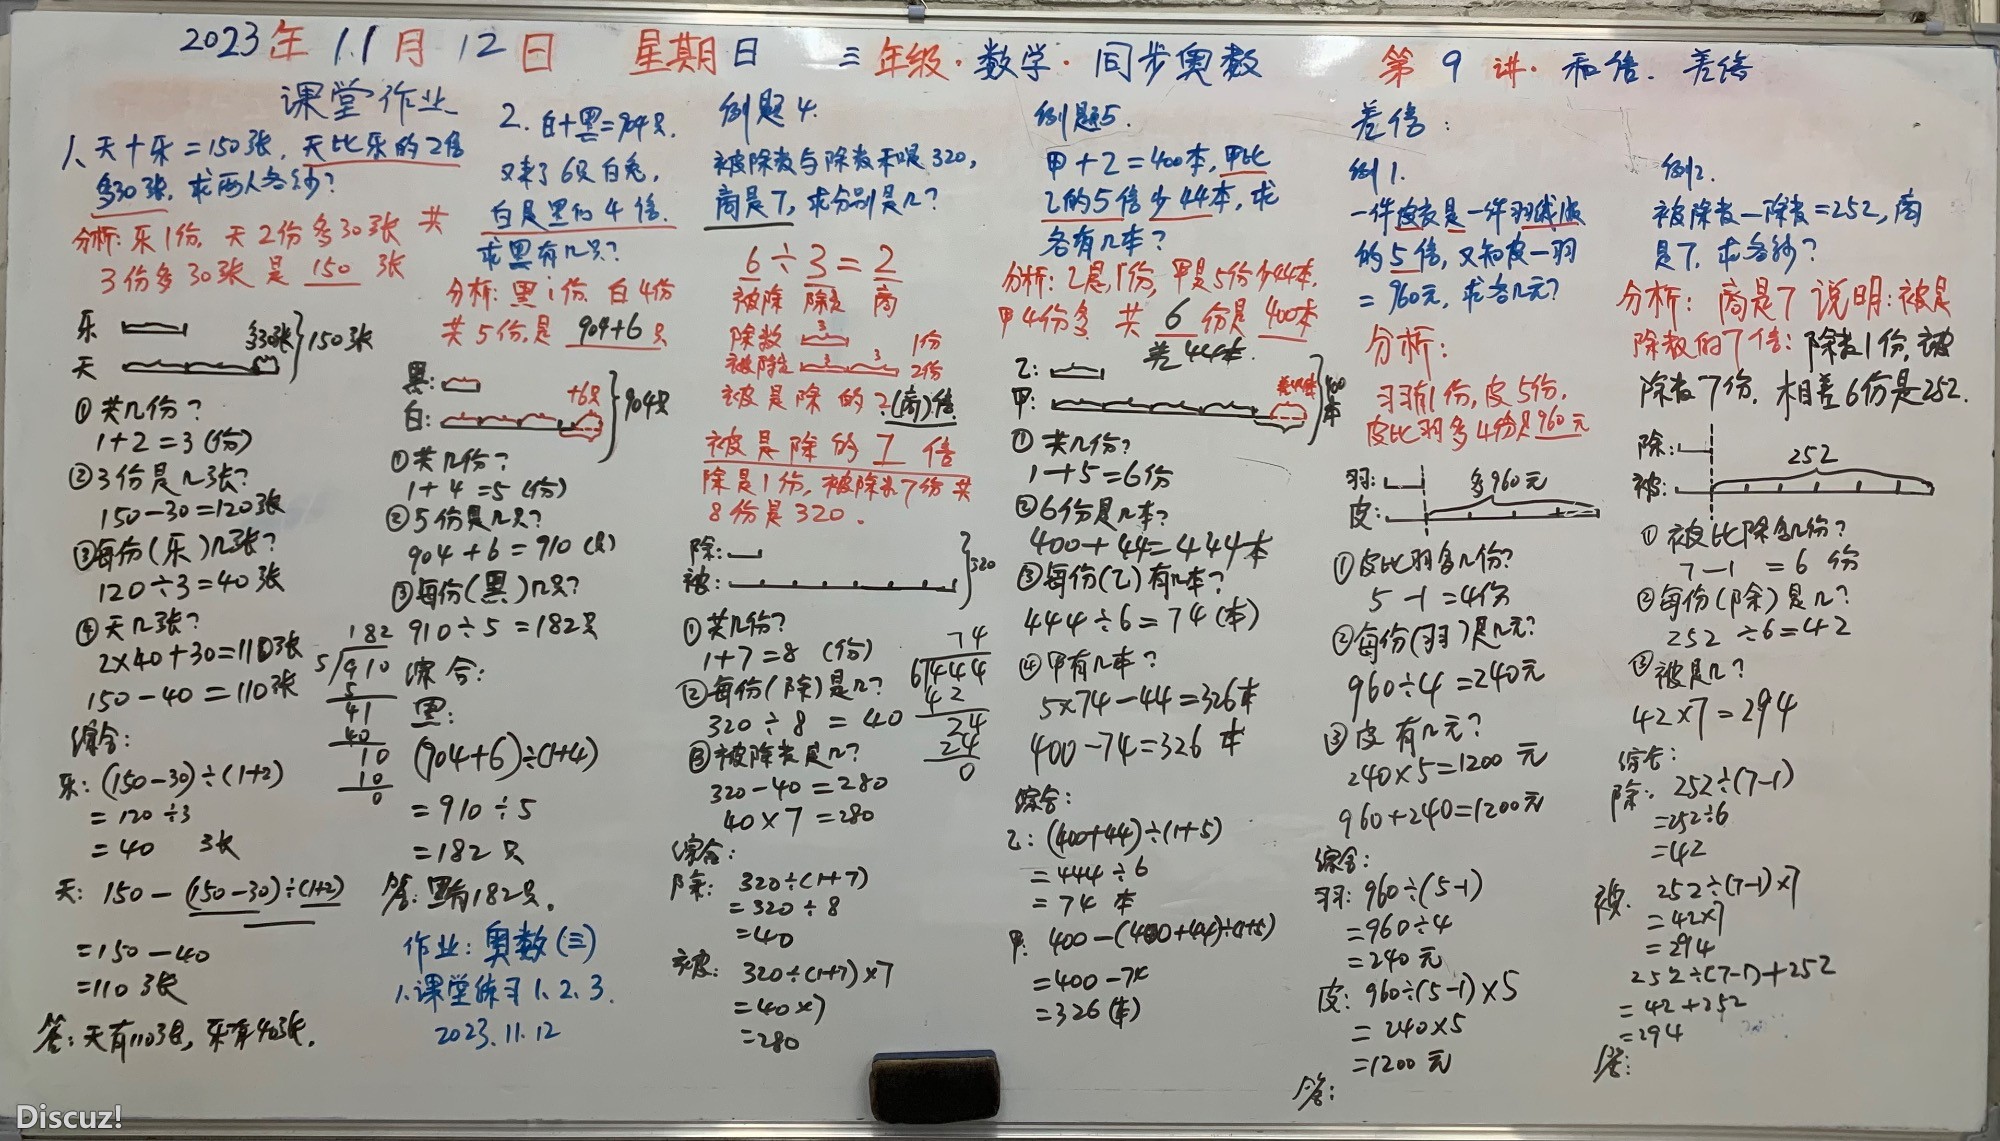 2023年11月12日 星期日 三年级·数学·同步奥数 第9讲·和倍.差倍
课堂作业
1、天+乐=150张,天比乐的2倍
多30张,求两人各多少?
分析:乐1份,天2份多30张 共
3份多30张是 150 张
乐
天
多30张
150张
①共几份?
1+2=3(份)
②3份是几张?
150-30=120张
③每份(乐)几张?
120÷3=40张
④天几张?
2×40+30=110张
150-40=110张
综合:
乐:(150-30)÷(1+2)
=120÷3
=40 张
天:150-(150-30)÷(1+2)
=150-40
=110张
答:天有110张,乐有40张.
2.白+黑=904只.
又来了6只白兔,
白是黑的4倍.
求黑有几只?
分析:黑1份 白4份
共5份,是 904+6只
黑:
白:
+6只
904只
①共几份?
1+4=5(份)
②5份是几只?
904+6=910(只)
③每份(黑)几只?
910÷5=182只
182
5 910
5
41
40
10
10
0
综合:
黑:
(904+6)÷(1+4)
=910÷5
=182只
答:黑有182只.
作业:奥数(三)
1.课堂练习1.2.3.
2023.11.12
例题4.
被除数与除数和是320,
商是7,求分别是几?
6÷3=2
被除 除数 商
除数 3 1份
被除数 3 3 2份
被是除的2(商)倍
被是除的7倍
除是1份,被除是7份 共
8份是320.
除:
被:
320
①共几份?
1+7=8(份)
②每份(除)是几?
320÷8=40
③被除数是几?
320-40=280
40×7=280
74
6 444
42
24
24
0
综合:
除:320÷(1+7)
=320÷8
=40
被:320÷(1+7)×7
=40×7
=280
例题5.
甲+乙=400本,甲比
乙的5倍少44本,求
各有几本?
分析:乙是1份,甲是5份少44本,
甲4份多 共 6 份是 400本
差44本.
乙:
甲:
400本
①共几份?
1+5=6份
②6份是几本?
400+44=444本
③每份(乙)有几本?
444÷6=74(本)
④甲有几本?
5×74-44=326本
400-74=326本
综合:
乙:(400+44)÷(1+5)
=444÷6
=74 本
甲:400-(400+44)÷(1+5)
=400-74
=326(本)
差倍:
例1.
一件皮衣是一件羽绒服
的5倍,又知皮-羽
=960元,求各几元?
分析:
羽有1份,皮5份,
皮比羽多4份是960元
羽:
皮:
多960元
①皮比羽多几份?
5-1=4份
②每份(羽)是几元?
960÷4=240元
③皮有几元?
240×5=1200元
960+240=1200元
综合:
羽:960÷(5-1)
=960÷4
=240元
皮:960÷(5-1)×5
=240×5
=1200元
答:
例2.
被除数-除数=252,商
是7,求各多少?
分析:商是7说明:被是
除数的7倍:除数1份,被
除数7份,相差6份是252.
除:
被:
252
①被比除多几份?
7-1=6份
②每份(除)是几?
252÷6=42
③被是几?
42×7=294
综合:
除:252÷(7-1)
=252÷6
=42
被.252÷(7-1)×7
=42×7
=294
252÷(7-1)+252
=42+252
=294
答:
Discuz!